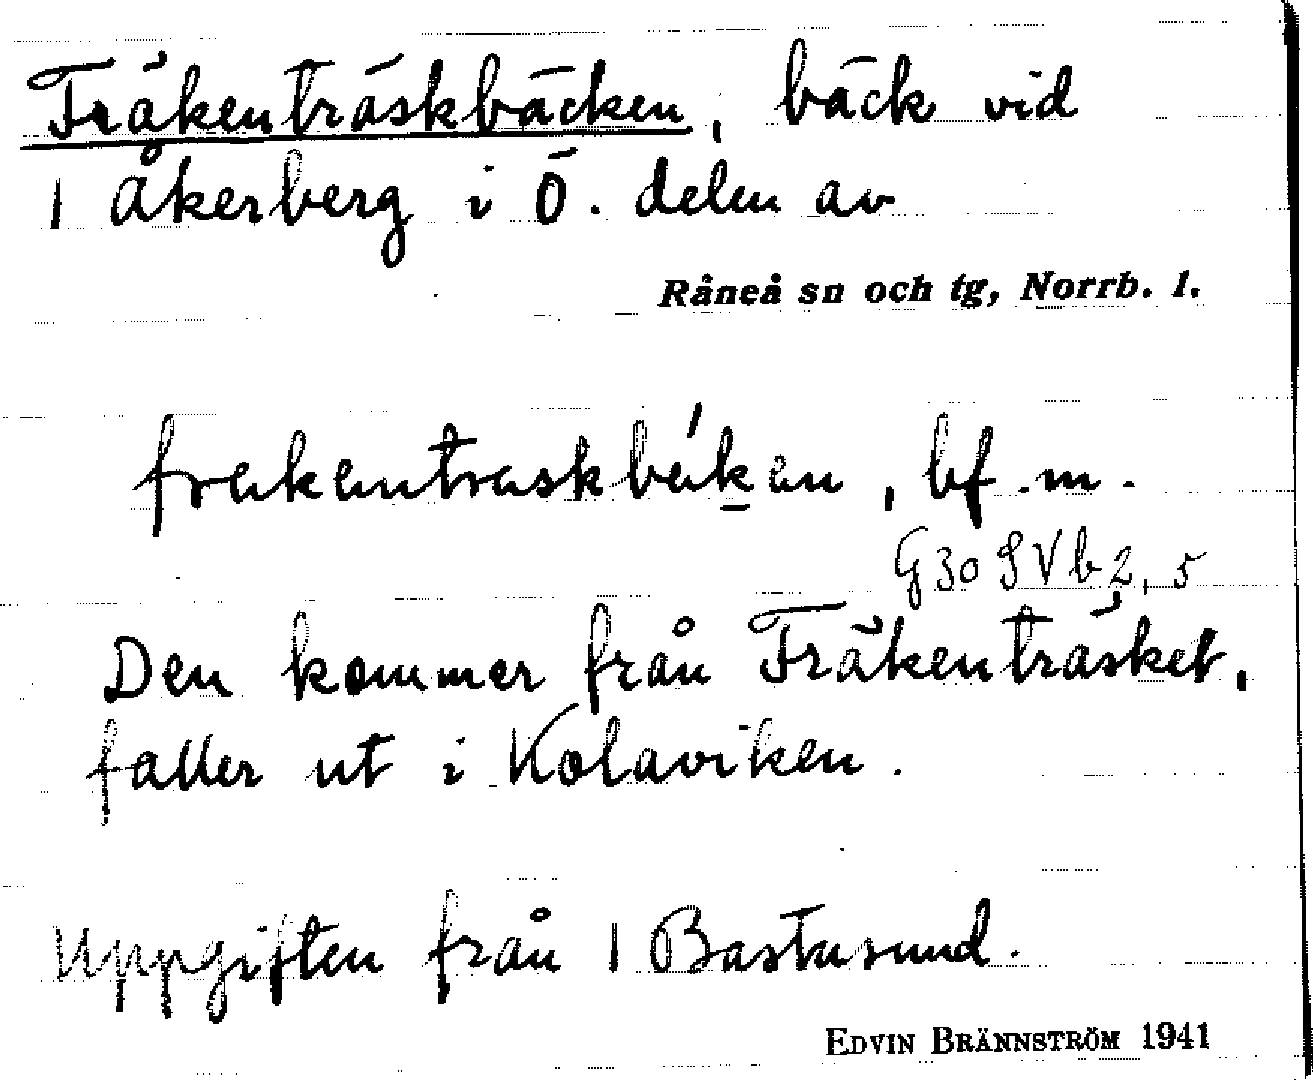 Fräkenträskbäcken, bäck vid
1 Åkerberg i Ö. delen av
Råneå sn och tg, Norrb. l.
frekentraskbékən, bf. m.
G 30 S V b 2, 5
Den kommer från Fräkenträsket,
faller ut i Kolaviken.
Uppgiften från 1 Bastusund.
EDVIN BRÄNNSTRÖM 1941